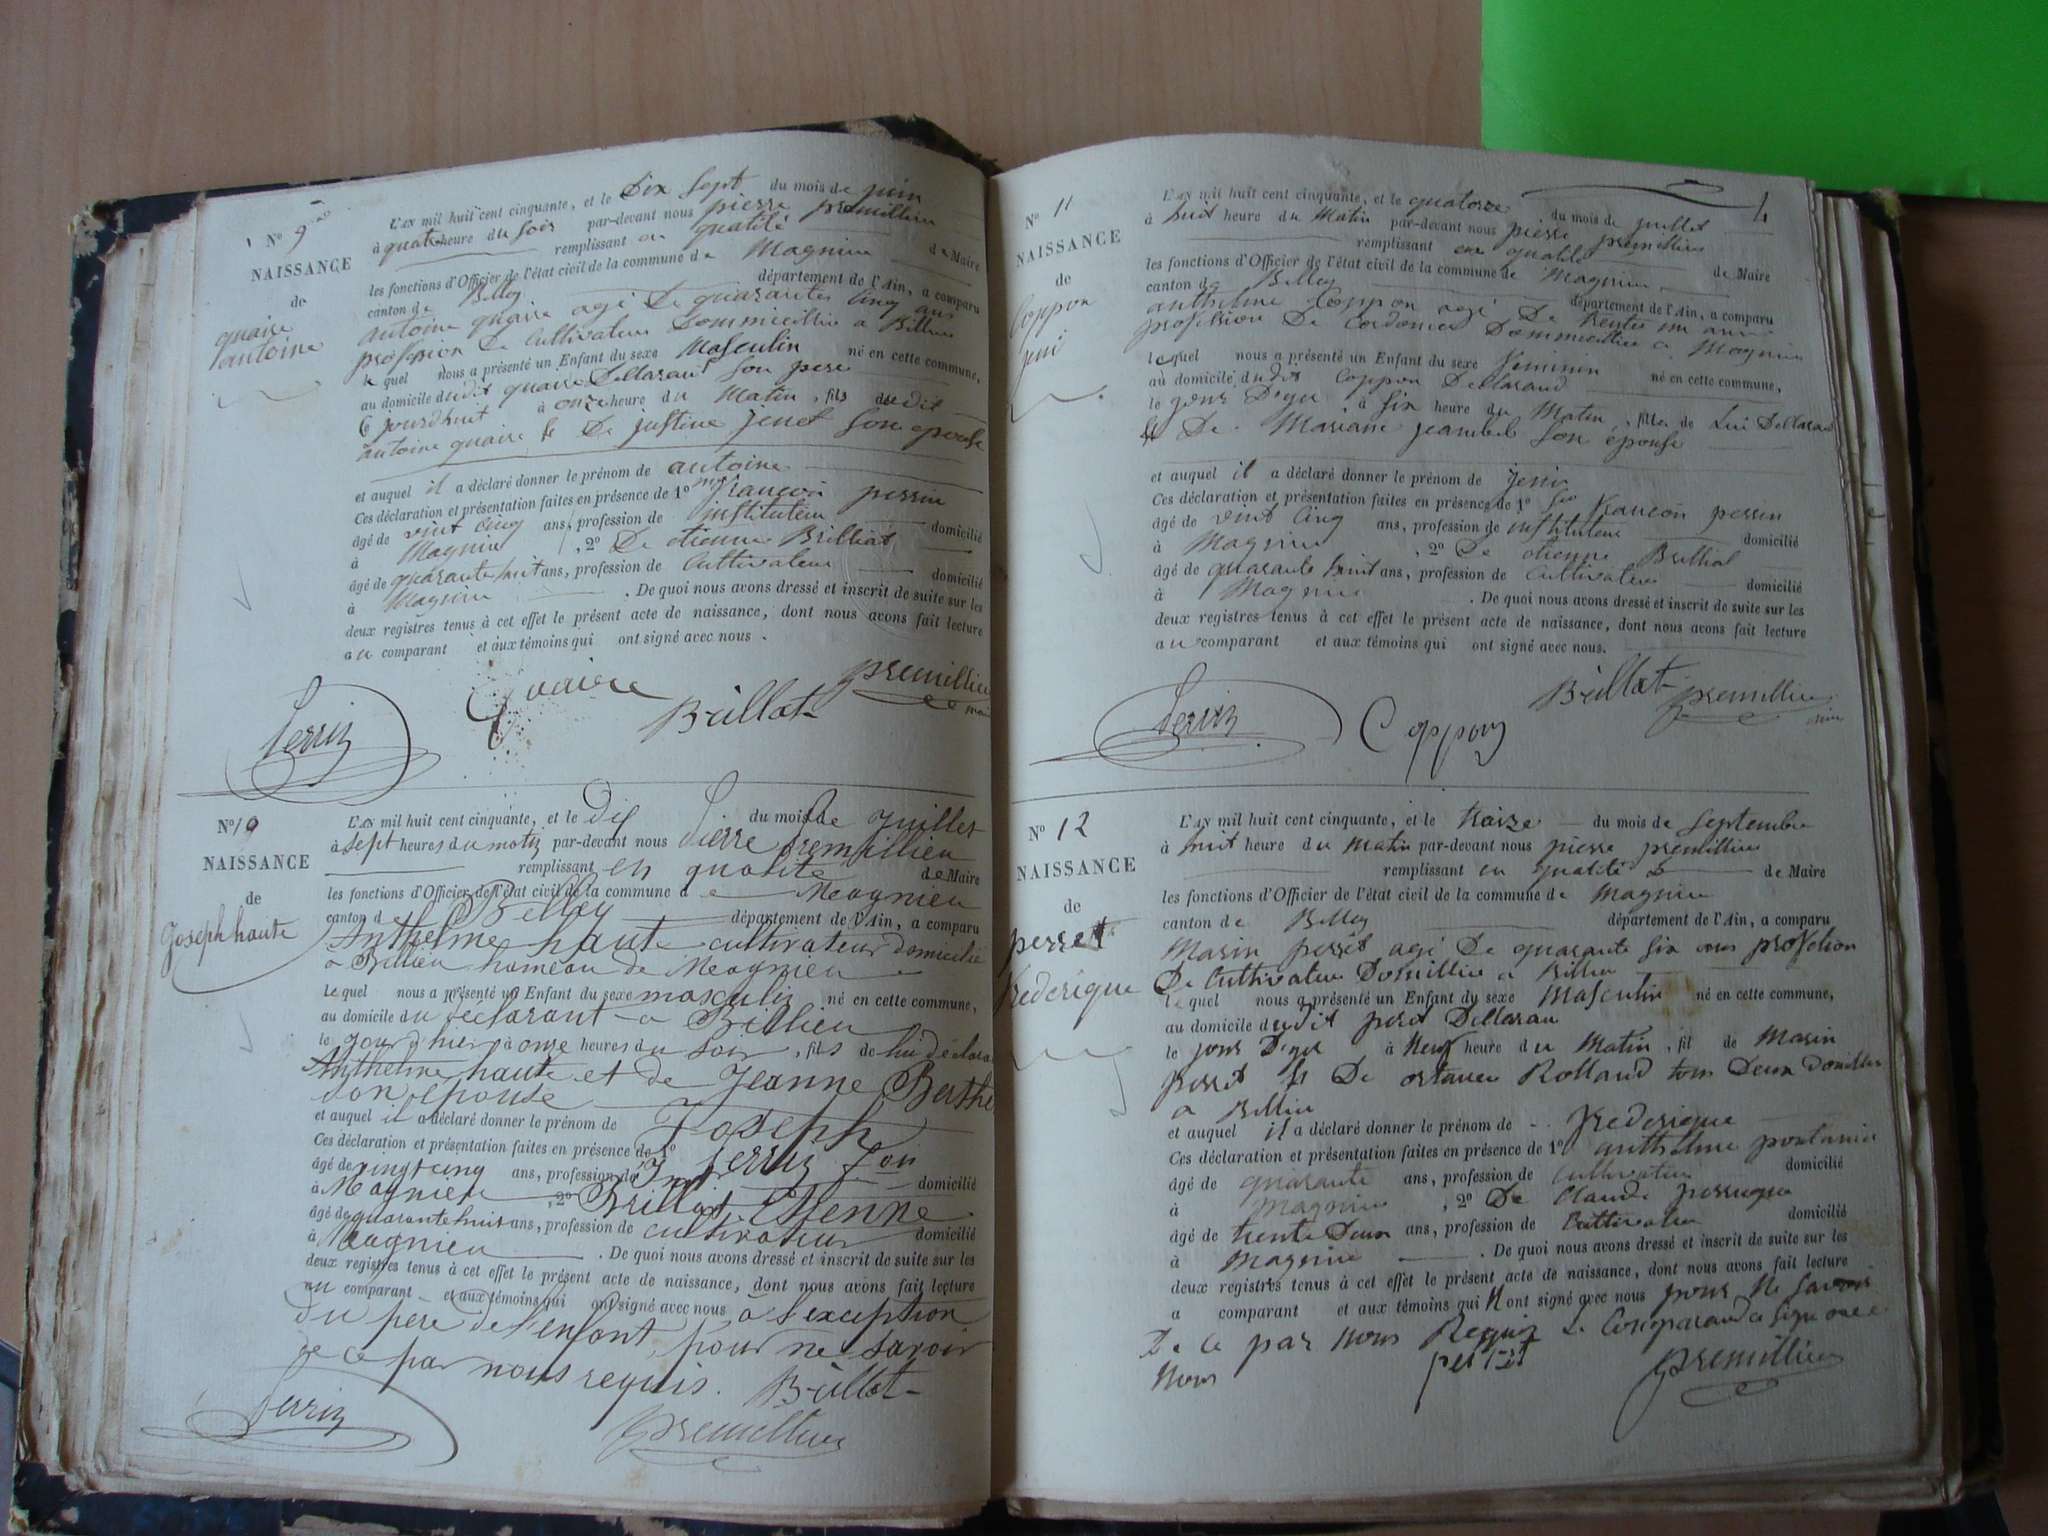 N° 9
NAISSANCE
de
quaire
antoine
L'AN mil huit cent cinquante, et le Dix sept du mois de juin
à quatre heure du soir par-devant nous pierre premillieu
remplissant en qualité de Maire
les fonctions d'Officier de l'état civil de la commune de Magnieu
canton de Belley département de l'Ain, a comparu
antoine quaire agé De quarantes cinq ans
profession De Cultivateur Dommicillié a Billieu
le quel nous a présenté un Enfant du sexe Masculin né en cette commune,
au domicile dudit quaire Dellarant Son pere
ce jourdhuit à onze heure du Matin, fils dudit
antoine quaire et De justine jenet Son epouse
et auquel il a déclaré donner le prénom de antoine
Ces déclaration et présentation faites en présence de 1° françois perrin
âgé de vint cinq ans, profession de instituteur domicilié
à Magnieu , 2° De etienne Brilliat
âgé de quarante huit ans, profession de Cultivateur domicilié
à Magnieu . De quoi nous avons dressé et inscrit de suite sur les
deux registres tenus à cet effet le présent acte de naissance, dont nous avons fait lecture
au comparant et aux témoins qui ont signé avec nous.
Perrin Quaire Brillat premillieu
N° 10
NAISSANCE
de
Joseph haute
L'AN mil huit cent cinquante, et le Dix du mois de Juillet
à sept heures du matin par-devant nous Pierre Premillieu
remplissant en qualité de Maire
les fonctions d'Officier de l'état civil de la commune de Magnieu
canton de Belley département de l'Ain, a comparu
Anthelme haute cultivateur domicilié
a Billieu hameau de Magnieu
le quel nous a présenté un Enfant du sexe masculin né en cette commune,
au domicile du déclarant a Billieu
le jour d'hier à onze heures du soir, fils de lui déclara
Anthelme haute et de Jeanne Berthe
son épouse
et auquel il a déclaré donner le prénom de Joseph
Ces déclaration et présentation faites en présence de 1° Perrin fois
âgé de vingt cinq ans, profession de domicilié
à Magnieu , 2° Brillat Etienne
âgé de quarante huit ans, profession de cultivateur domicilié
à Magnieu . De quoi nous avons dressé et inscrit de suite sur les
deux registres tenus à cet effet le présent acte de naissance, dont nous avons fait lecture
au comparant et aux témoins qui ont signé avec nous à l'exception
du père de l'enfant, pour ne savoir
de ce par nous requis. Brillat
Perrin premillieu
4
N° 11
NAISSANCE
de
Coppon
jeni
L'AN mil huit cent cinquante, et le quatorze du mois de juillet
à huit heure du Matin par-devant nous pierre premillieu
remplissant en qualité de Maire
les fonctions d'Officier de l'état civil de la commune de Magnieu
canton de Belley département de l'Ain, a comparu
anthelme Coppon agé De trentes un ans
profession De Cordonier Dommicillie a Magnieu
lequel nous a présenté un Enfant du sexe feminin né en cette commune,
au domicile dudit Coppon Dellarand
le jour D'yer à six heure du Matin, fille de Lui Dellarand
et De Mariane jeambel Son épouse
et auquel il a déclaré donner le prénom de Jeni
Ces déclaration et présentation faites en présence de 1° françois perrin
âgé de vint cinq ans, profession de instituteur domicilié
à Magnieu , 2° De etienne Brilliat
âgé de quarante huit ans, profession de Cultivateur domicilié
à Magnieu . De quoi nous avons dressé et inscrit de suite sur les
deux registres tenus à cet effet le présent acte de naissance, dont nous avons fait lecture
au comparant et aux témoins qui ont signé avec nous.
Perrin Coppon Brillat premillieu
N° 12
NAISSANCE
de
perret
frederique
L'AN mil huit cent cinquante, et le traize du mois de Septembre
à huit heure du Matin par-devant nous pierre premillieu
remplissant en qualité de Maire
les fonctions d'Officier de l'état civil de la commune de Magnieu
canton de Belley département de l'Ain, a comparu
Marin perret agé De quarante six ans profession
De Cultivateur Domillie a Billieu
le quel nous a présenté un Enfant du sexe Masculin né en cette commune,
au domicile dudit peret Dellaran
le jour D'yer à Neuf heure du Matin, fil de Marin
perret et De Rolland tous Deux
a Billieu
et auquel il a déclaré donner le prénom de frederique
Ces déclaration et présentation faites en présence de 1° anthelme
âgé de quarante ans, profession de Cultivateur domicilié
à Magnieu , 2° De Claude
âgé de trente Deux ans, profession de Cultivateur domicilié
à Magnieu . De quoi nous avons dressé et inscrit de suite sur les
deux registres tenus à cet effet le présent acte de naissance, dont nous avons fait lecture
a comparant et aux témoins qui Nont signé avec nous pour Ne Savoir
De ce par Nous Requis Le Comparand a signé avec
Nous perret premillieu